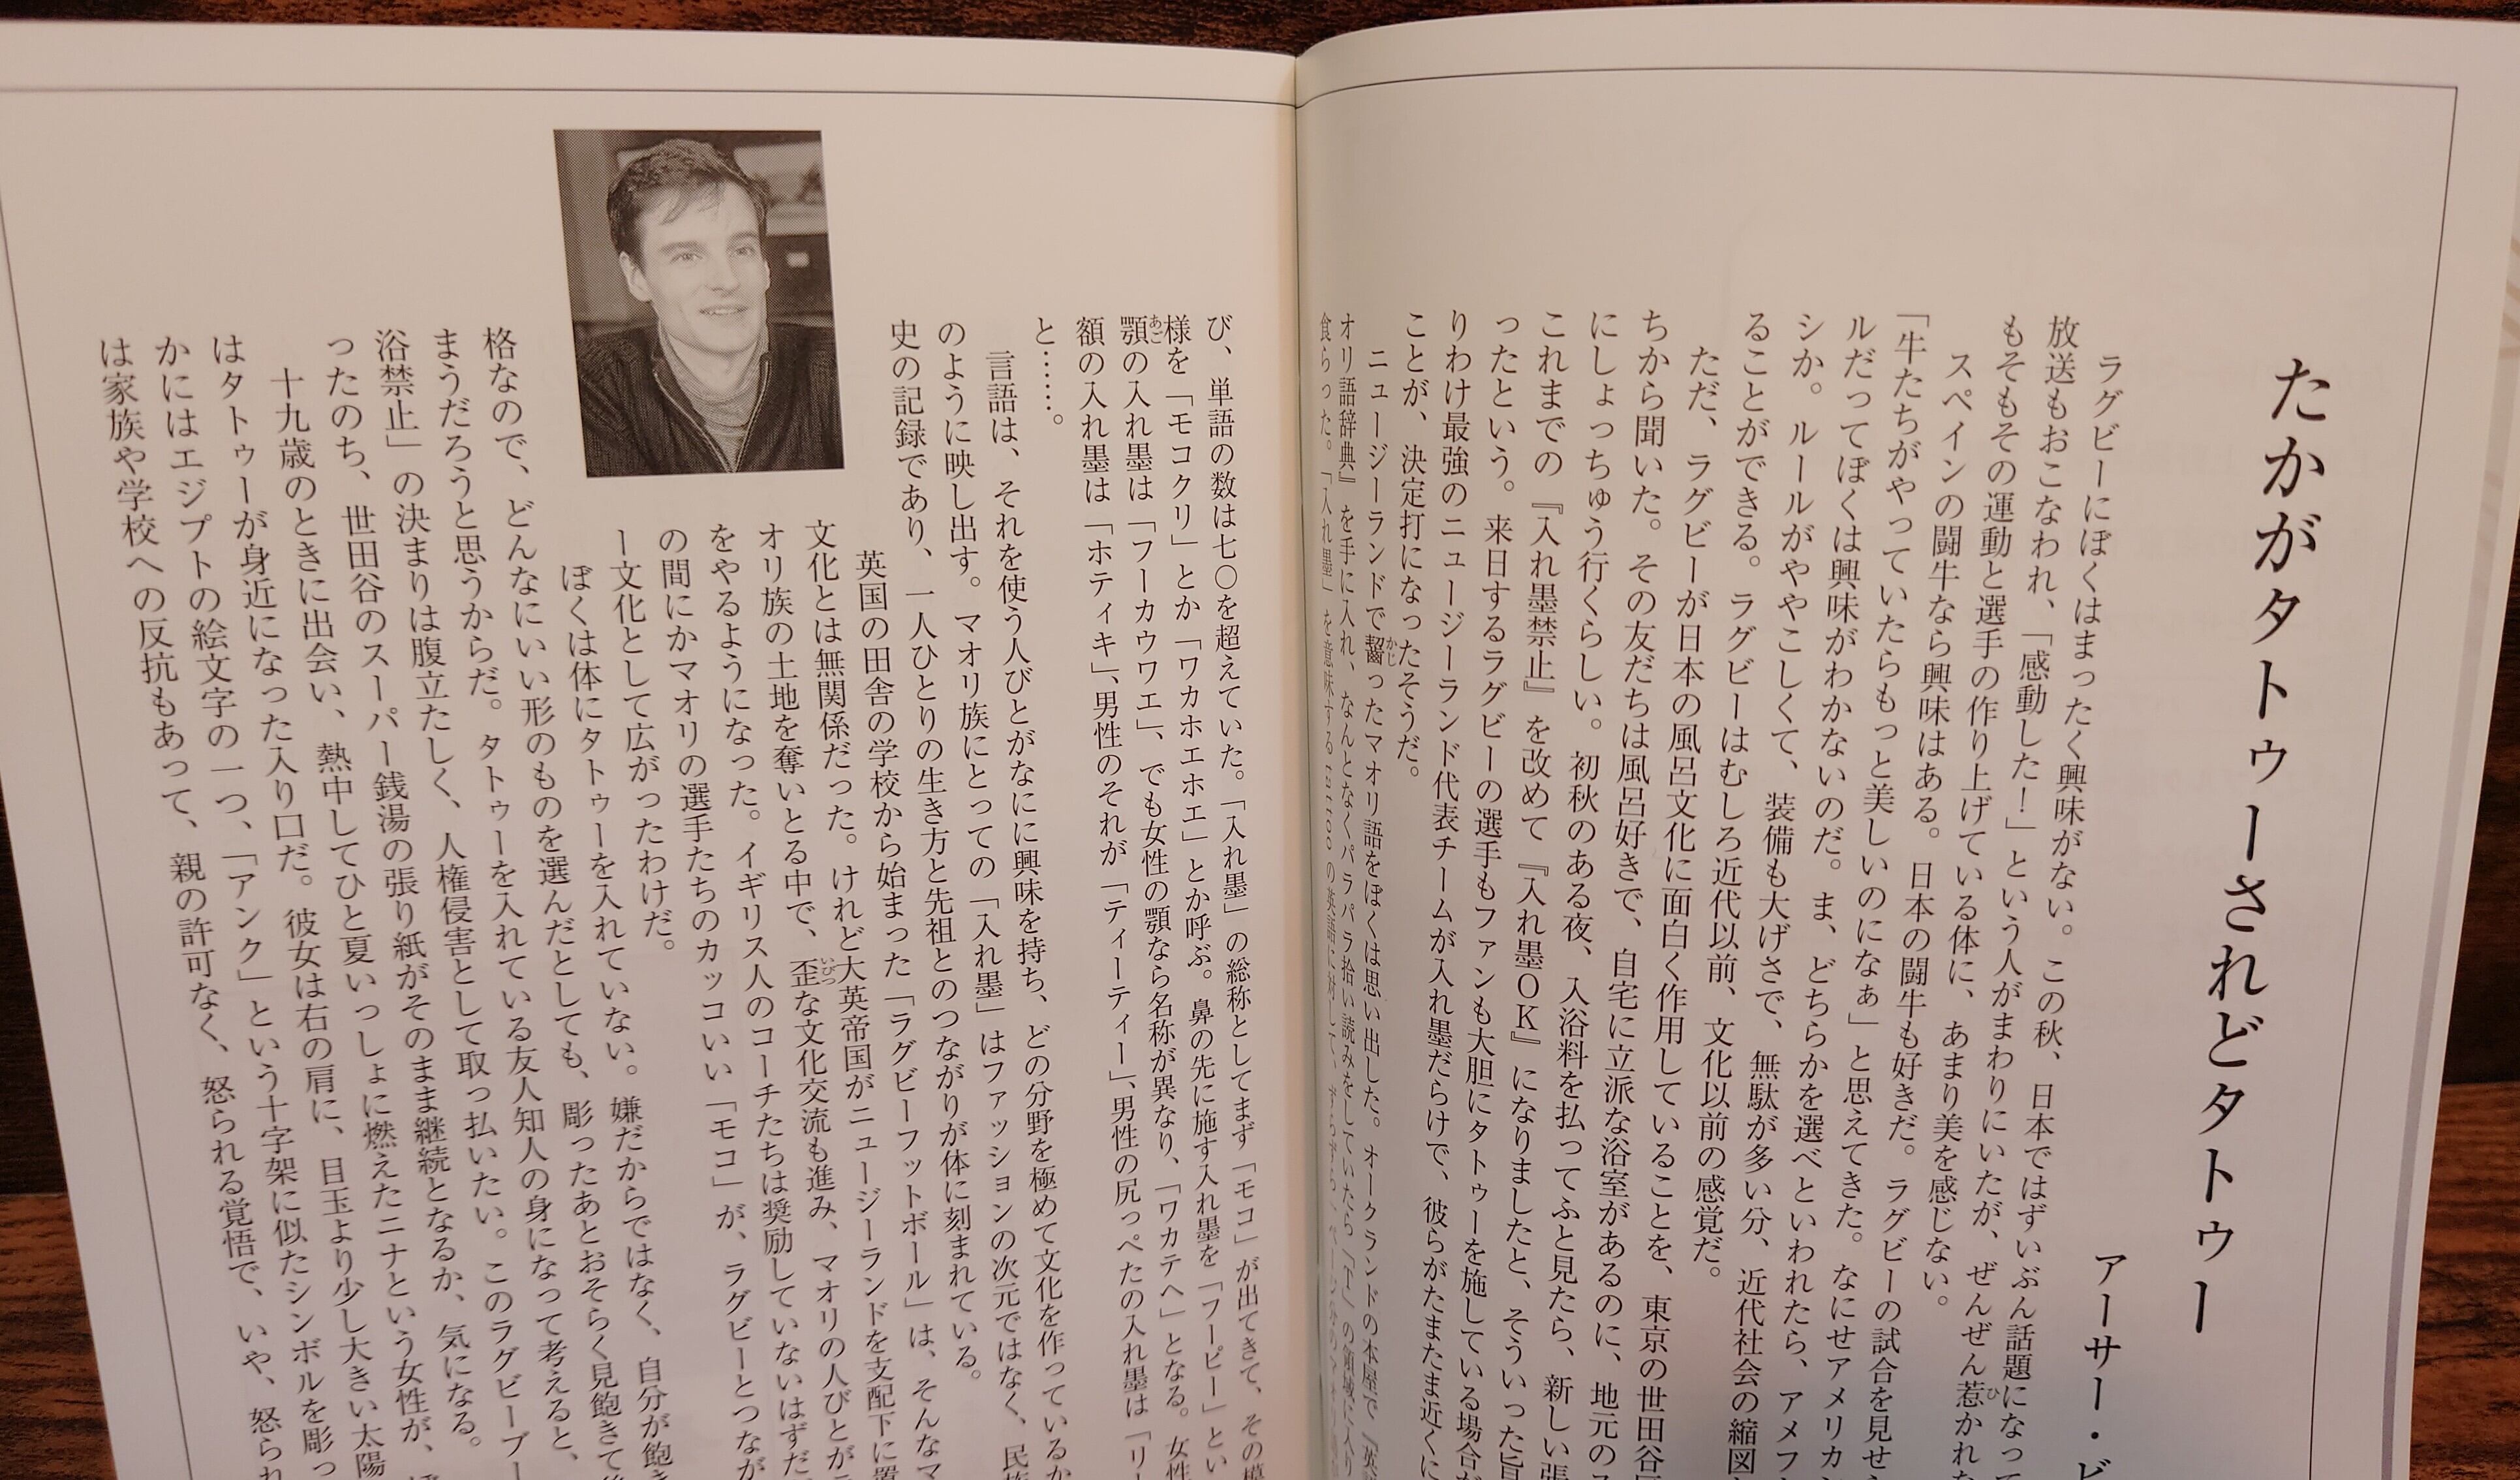 たかがタトゥーされどタトゥー
アーサー・ビ
ラグビーにぼくはまったく興味がない。この秋、日本ではずいぶん話題になって
放送もおこなわれ、「感動した！」という人がまわりにいたが、ぜんぜん惹かれな
もそもその運動と選手の作り上げている体に、あまり美を感じない。
スペインの闘牛なら興味はある。日本の闘牛も好きだ。ラグビーの試合を見せ
「牛たちがやっていたらもっと美しいのになぁ」と思えてきた。なにせアメリカン
ルだってぼくは興味がわかないのだ。ま、どちらかを選べといわれたら、アメフ
シか。ルールがややこしくて、装備も大げさで、無駄が多い分、近代社会の縮図
ることができる。ラグビーはむしろ近代以前、文化以前の感覚だ。
ただ、ラグビーが日本の風呂文化に面白く作用していることを、東京の世田谷
ちから聞いた。その友だちは風呂好きで、自宅に立派な浴室があるのに、地元のス
にしょっちゅう行くらしい。初秋のある夜、入浴料を払ってふと見たら、新しい張
これまでの『入れ墨禁止』を改めて『入れ墨OK』になりましたと、そういった旨
ったという。来日するラグビーの選手もファンも大胆にタトゥーを施している場合が
りわけ最強のニュージーランド代表チームが入れ墨だらけで、彼らがたまたま近くに
ことが、決定打になったそうだ。
ニュージーランドで齧ったマオリ語をぼくは思い出した。オークランドの本屋で『英
オリ語辞典』を手に入れ、なんとなくパラパラ拾い読みをしていたら「T」の領域に入り
食らった。「入れ墨」を意味する tattoo の英語に
び、単語の数は七〇を超えていた。「入れ墨」の総称としてまず「モコ」が出てきて、その模
様を「モコクリ」とか「ワカホエホエ」とか呼ぶ。鼻の先に施す入れ墨を「フーピー」とい
顎の入れ墨は「フーカウワエ」、でも女性の顎なら名称が異なり、「ワカテヘ」となる。女性
額の入れ墨は「ホティキ」、男性のそれが「ティーティー」、男性の尻っぺたの入れ墨は「リー
と……。
言語は、それを使う人びとがなにに興味を持ち、どの分野を極めて文化を作っているか
のように映し出す。マオリ族にとっての「入れ墨」はファッションの次元ではなく、民族
史の記録であり、一人ひとりの生き方と先祖とのつながりが体に刻まれている。
英国の田舎の学校から始まった「ラグビーフットボール」は、そんなマ
文化とは無関係だった。けれど大英帝国がニュージーランドを支配下に置
オリ族の土地を奪いとる中で、歪な文化交流も進み、マオリの人びとが
をやるようになった。イギリス人のコーチたちは奨励していないはずだ
の間にかマオリの選手たちのカッコいい「モコ」が、ラグビーとつなが
ー文化として広がったわけだ。
ぼくは体にタトゥーを入れていない。嫌だからではなく、自分が飽き
格なので、どんなにいい形のものを選んだとしても、彫ったあとおそらく見飽きて
まうだろうと思うからだ。タトゥーを入れている友人知人の身になって考えると、
浴禁止」の決まりは腹立たしく、人権侵害として取っ払いたい。このラグビーブー
ったのち、世田谷のスーパー銭湯の張り紙がそのまま継続となるか、気になる。
十九歳のときに出会い、熱中してひと夏いっしょに燃えたニナという女性が、ぼ
はタトゥーが身近になった入り口だ。彼女は右の肩に、目玉より少し大きい太陽
かにはエジプトの絵文字の一つ、「アンク」という十字架に似たシンボルを彫っ
は家族や学校への反抗もあって、親の許可なく、怒られる覚悟で、いや、怒られ